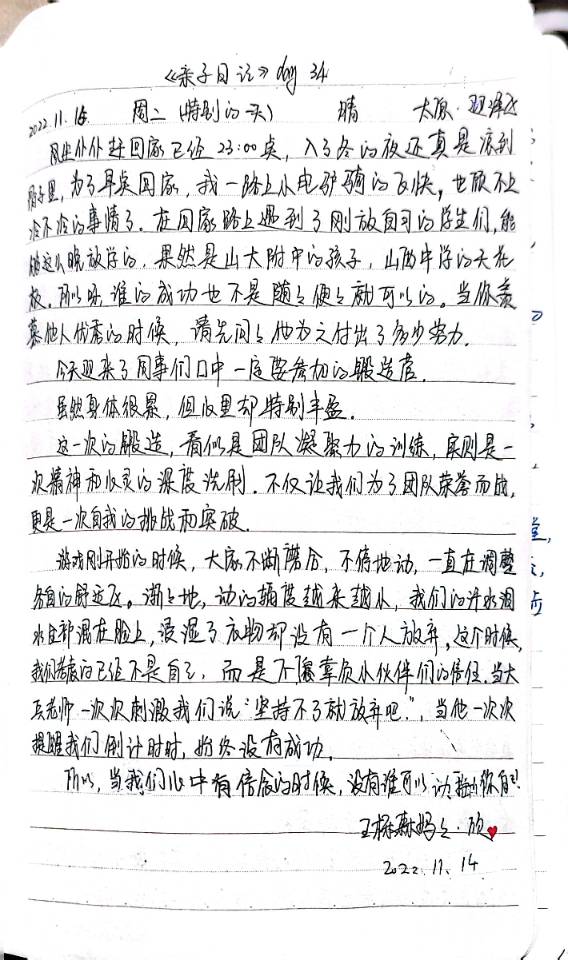 《亲子日记》day 34
2022.11.15 周二(特别的一天) 晴 太原·迎泽区
风尘仆仆赶回家已经23:00点,入了冬的夜还真是凉到
骨子里,为了早点回家,我一路上小电驴骑的飞快,也顾不上
冷不冷的事情了.在回家路上遇到了刚放自习的学生们,能
够这么晚放学的,果然是山大附中的孩子,山西中学的天花
板.所以呀,谁的成功也不是随随便便就可以的.当你羡
慕他人优秀的时候,请先问问他为之付出了多少努力.
今天迎来了同事们口中一定要参加的锻造营.
虽然身体很累,但心里却特别丰盈.
这一次的锻造,看似是团队凝聚力的训练,实则是一
次精神和心灵的深度洗刷.不仅让我们为了团队荣誉而战,
更是一次自我的挑战和突破.
游戏刚开始的时候,大家不断磨合,不停地动,一直在调整
各自的舒适区。渐渐地,动的幅度越来越小,我们的汗水泪
水全部混在脸上,浸湿了衣物却没有一个人放弃,这个时候,
我们考虑的已经不是自己,而是不辜负小伙伴们的信任.当大
兵老师一次次刺激我们说“坚持不了就放弃吧.”,当他一次次
提醒我们倒计时时,始终没有成功.
所以,当我们心中有信念的时候,没有谁可以动你的!
妈妈·欣
2022.11.14